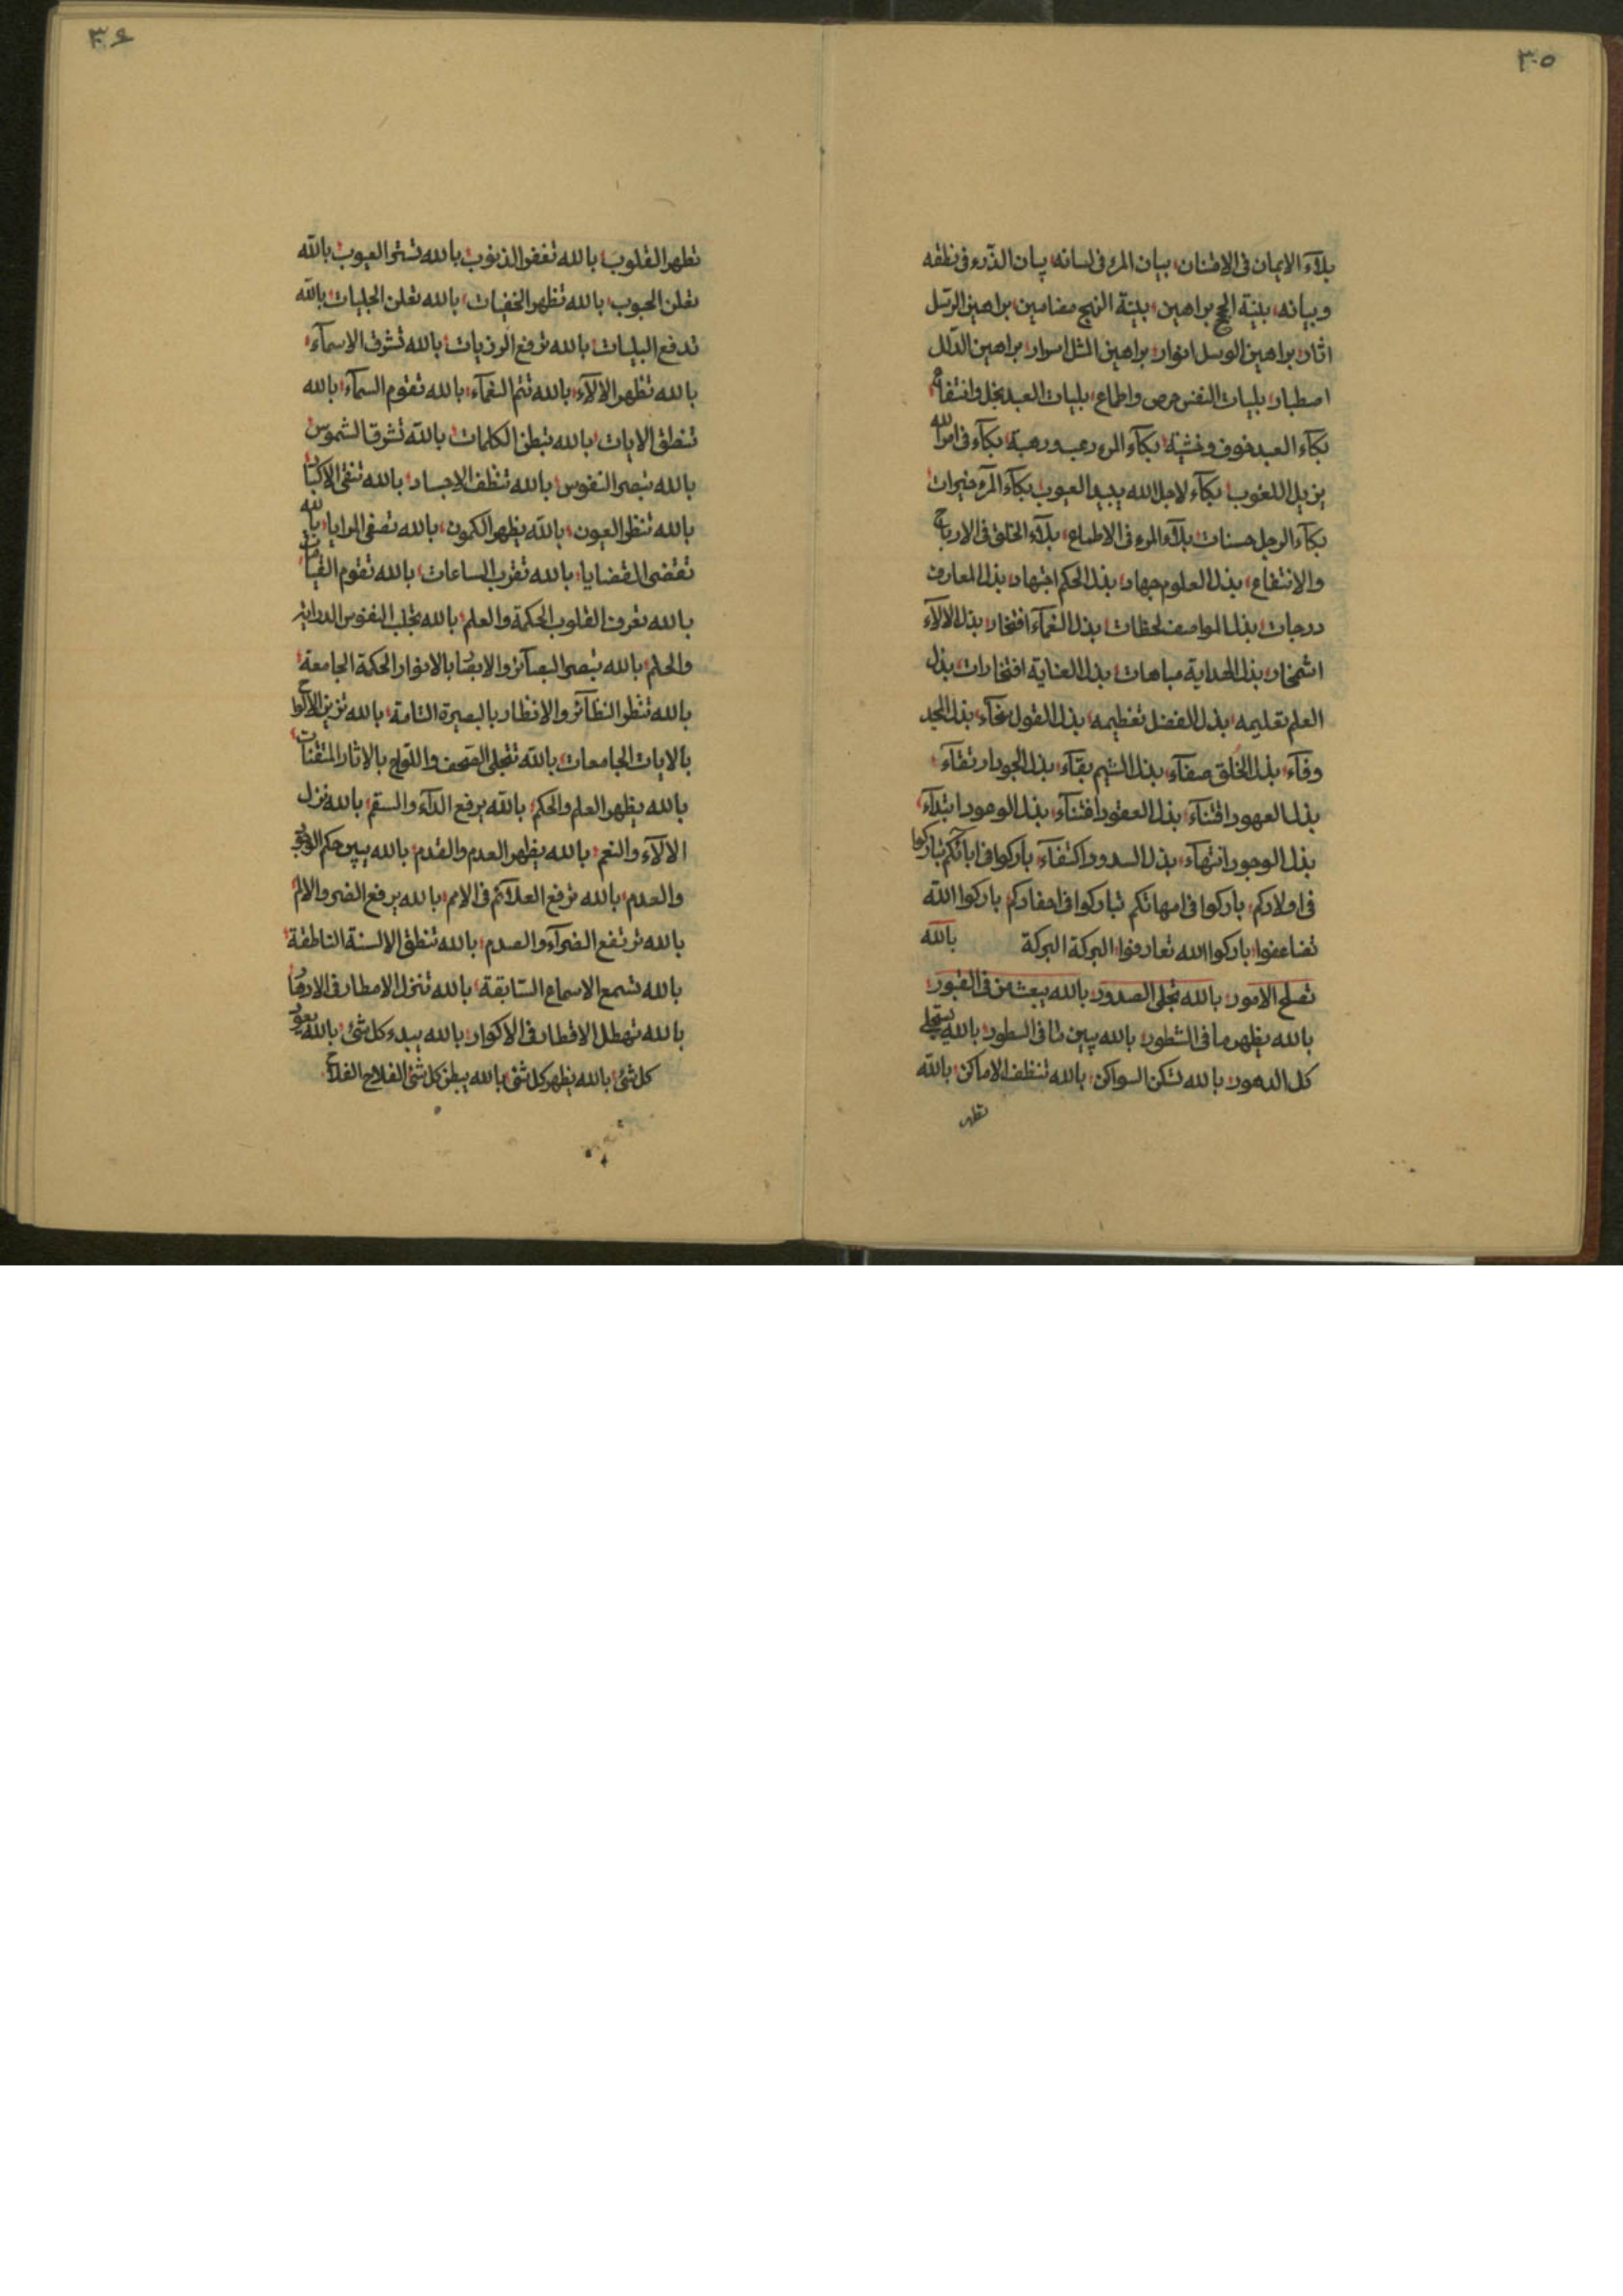 ٣٠٥
بلآء الايمان فى الامتنان بيان المرء فى لسانه بيان الذرء فى نطقه
وبيانه بينة الحجج براهين بينة النهج مضامين براهين الرسل
اثار براهين الوسل انوار براهين المثل اسرار براهين الدلل
اصطبار بليات النفس حرص واطماع بليات العبد بخل وانتفاع
بكآء العبد خوف وخشية بكآء المرء رعب ورهبة بكآء فى امر الله
يزيل اللغوب بكآء لاجل الله يبيد العيوب بكآء المرء خيرات
بكآء الرجل حسنات بلآء المرء فى الاطماع بلآء الخلق فى الارباح
والانتفاع بذل العلوم جهاد بذل الحكم اجتهاد بذل المعارف
درجات بذل المواصف لحظات بذل النعمآء افتخار بذل الالآء
اشمخار بذل الهداية مباهات بذل العناية افتخارات بذل
العلم تعليمه بذل الفضل تعظيمه بذل القول سخآء بذل المجد
وفآء بذل الخلق صفآء بذل الشيم بقآء بذل الجود ارتقآء
بذل العهود اقتنآء بذل العقود افتنآء بذل الوجود ابتدآء
بذل الوجود انتهآء بذل السدود اكتفآء باركوا فى ابآئكم تباركوا
فى اولادكم باركوا فى امهاتكم تباركوا فى احفادكم باركوا الله
تضاعفوا باركوا الله تعارفوا البركة البركة بالله
تصلح الامور بالله تجلى الصدور بالله يبعث من فى القبور
بالله يظهر ما فى الشطور بالله يبين ما فى السطور بالله يستجلى
كل الدهور بالله تسكن السواكن بالله تنظف الاماكن بالله
تطهر
٣٠۶
تطهر القلوب بالله تغفر الذنوب بالله تستر العيوب بالله
تعلن الحبوب بالله تظهر الخفيات بالله تعلن الجليات بالله
تدفع البليات بالله ترفع الرزيات بالله تشرق الاسمآء
بالله تظهر الالآء بالله تتم النعمآء بالله تقوم السمآء بالله
تنطق الايات بالله تبطن الكلمات بالله تشرق الشموس
بالله تبصر النفوس بالله تنظف الاجساد بالله تنقى الاكباد
بالله تنظر العيون بالله يظهر الكمون بالله تصفى المرايا بالله
تقتضى القضايا بالله تقرب الساعات بالله تقوم القيامات
بالله تعرف القلوب الحكمة والعلم بالله تجلب النفوس الدراية
والحلم بالله تبصر البصآئر والابصار بالانوار الحكمة الجامعة
بالله تنظر النظآئر والانظار بالبصيرة التامة بالله تزين الالواح
بالايات الجامعات بالله تتجلى الصحف واللواح بالاثار المتقنات
بالله يظهر العلم والحكم بالله يرفع الدآء والسقم بالله نزل
الالآء والنعم بالله يظهر العدم والقدم بالله يبين حكم الوجود
والعدم بالله ترفع العلآئم فى الامم بالله يرفع الضر والالم
بالله ترتفع الضرآء والصدم بالله تنطق الالسنة الناطقة
بالله تسمع الاسماع السابقة بالله تنزل الامطار فى الادهار
بالله تهطل الاقطار فى الاكوار بالله يبدء كل شئ بالله يعود
كل شئ بالله يظهر كل شئ بالله يبطن كل شئ الفلاح الفلاح